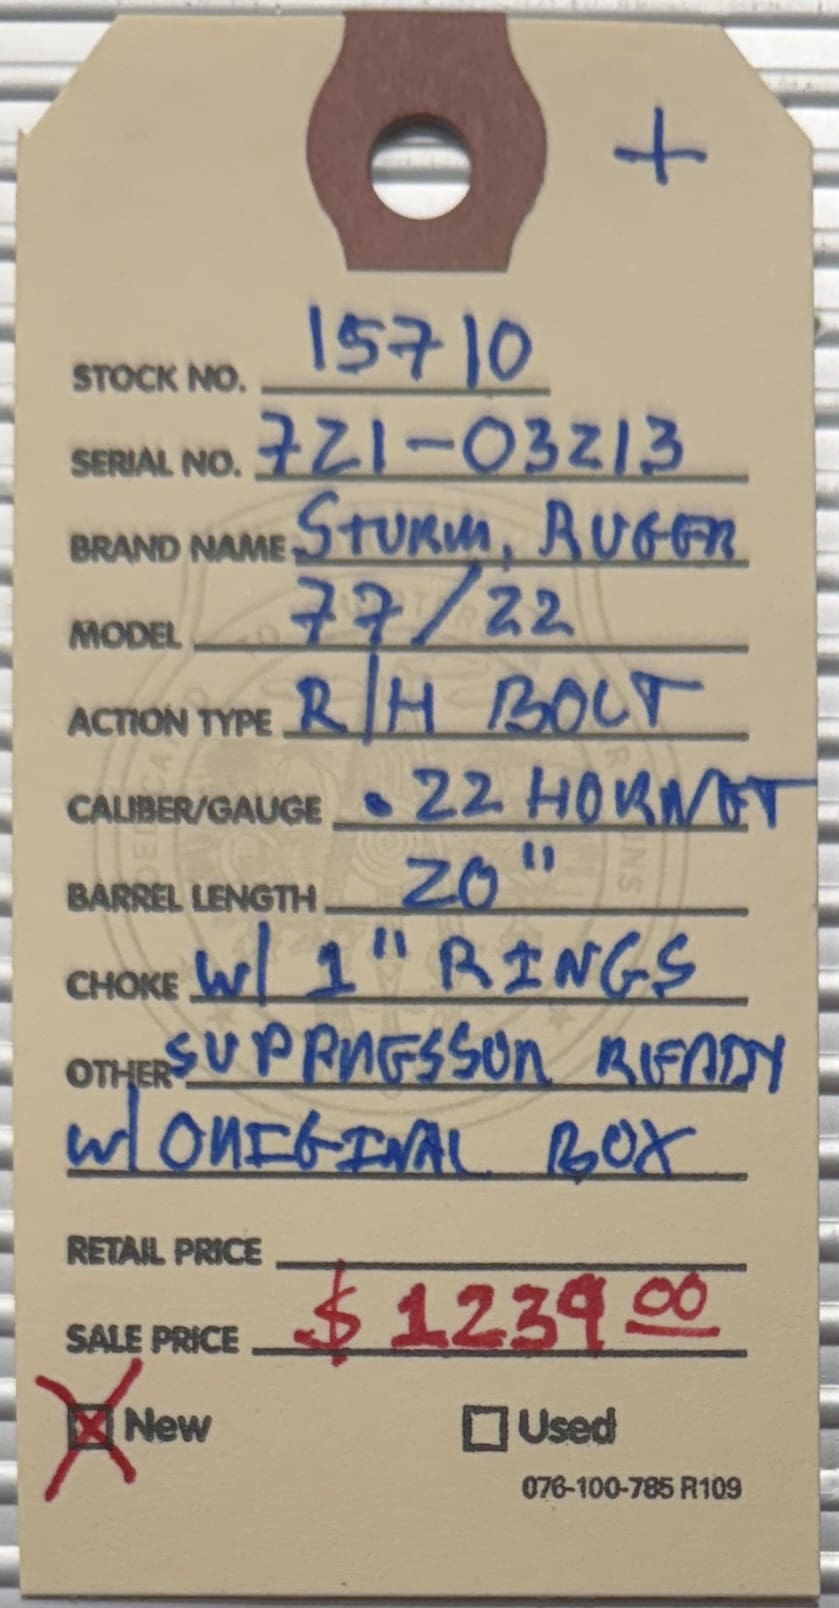 +
STOCK NO. 15710
SERIAL NO. 721-03213
BRAND NAME STURM, RUGER
MODEL 77/22
ACTION TYPE R/H BOLT
CALIBER/GAUGE .22 HORNET
BARREL LENGTH 20"
CHOKE W/ 1" RINGS
OTHER SUPPRESSOR READY
W/ ORIGINAL BOX
RETAIL PRICE
SALE PRICE $1239 00
X New Used
076-100-785 R109